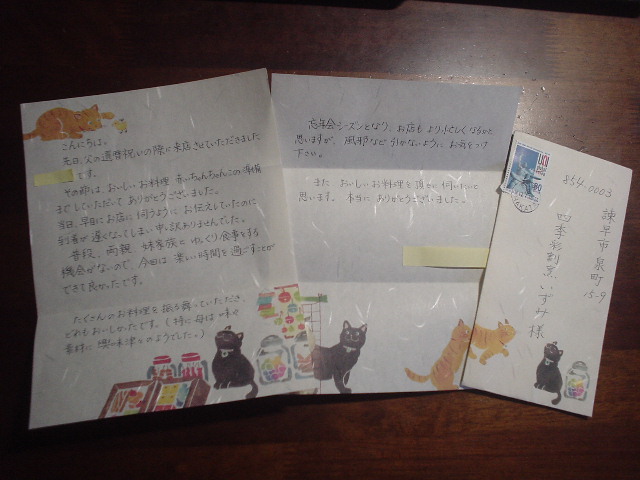 こんにちは。
先日、父の還暦祝いの際に来店させていただきました
です。
その節は、おいしいお料理、赤いちゃんちゃんこの準備
までしていただいて ありがとうございました。
当日、早目にお店に伺うように お伝えしていたのに
到着が遅くなってしまい申し訳ありませんでした。
普段、両親、妹家族と ゆっくり食事をする
機会がないので、今回は 楽しい時間を過ごすことが
できて良かったです。
たくさんのお料理を振る舞っていただき、
どれもおいしかったです。(特に母は
素材に 興味津々のようでした。)
忘年会シーズンとなり、お店も より忙しくなるかと
思いますが、風邪など引かないように お気をつけ
下さい。
また おいしいお料理を頂きに伺いたいと
思います。本当に ありがとうございました。
854-0003
諫早市泉町
15-9
四季彩割烹 いずみ様